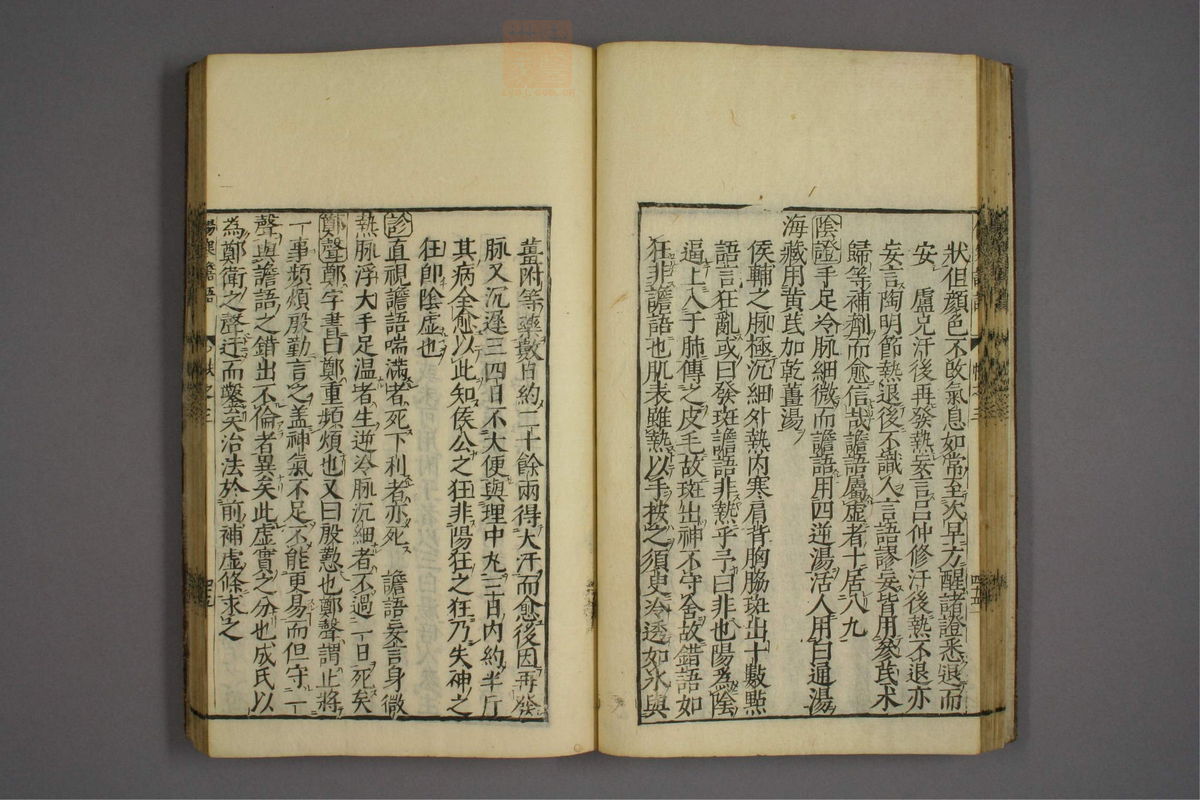 狀但顔色不改氣息如常至次早方醒諸證悉退而
安　盧兄汗後再發熱妄言呂仲修汗後熱不退亦
妄言陶明節熱退後不識人言語謬妄皆用參芪朮
歸等補劑而愈信哉譫語屬虛者十居八九
陰證手足冷脉細微而譫語用四逆湯活人用白通湯
海藏用黄芪加乾薑湯
侯輔之脉極沉細外熱内寒肩背胸脇斑出十數點
語言狂亂或曰發斑譫語非熱乎予曰非也陽為陰
逼上入于肺傳之皮毛故斑出神不守舍故錯語如
狂非譫語也肌表雖熱以手按之須臾冷透如氷與
薑附等藥數日約二十餘兩得大汗而愈後因再發
脉又沉遲三四日不大便與理中丸三日内約半斤
其病全愈以此知侯公之狂非陽狂之狂乃失神之
狂即陰虛也
診直視譫語喘滿者死下利者亦死　譫語妄言身微
熱脉浮大手足温者生逆冷脉沉細者不過一日死矣
鄭聲鄭字書曰鄭重頻煩也又曰殷懃也鄭聲謂止將
一事頻煩殷勤言之盖神氣不足不能更易而但守一
聲與譫語之錯出不倫者異矣此虛實之分也成氏以
為鄭衛之聲迂而鑿矣治法於前補虛條求之
傷寒譫語